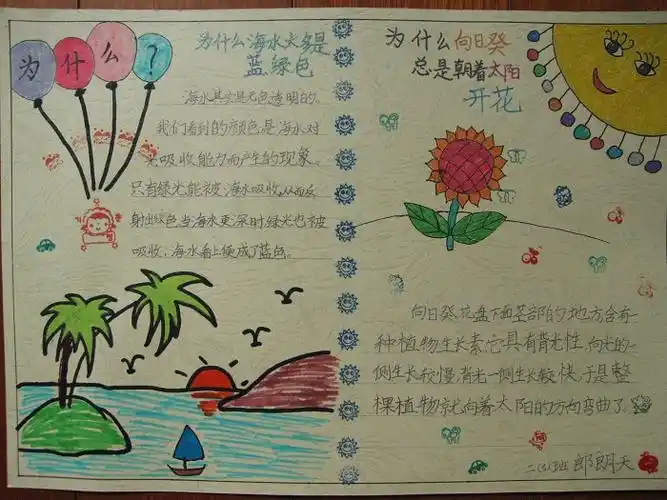 为什么?
为什么海水大多是
蓝绿色
海水其实是无色透明的。
我们看到的颜色是海水对
光吸收能力而产生的现象。
只有绿光能被海水吸收,从而反
射出绿色,当海水更深时,绿光也被
吸收,海水看上便成了蓝色。
为什么向日葵
总是朝着太阳
开花
向日葵花盘下面茎部的地方含有一
种植物生长素,它具有背光性,向光的一
侧生长较慢,背光一侧生长较快,于是整
棵植物就向着太阳的方向弯曲了。
二(3)班 郎朗天